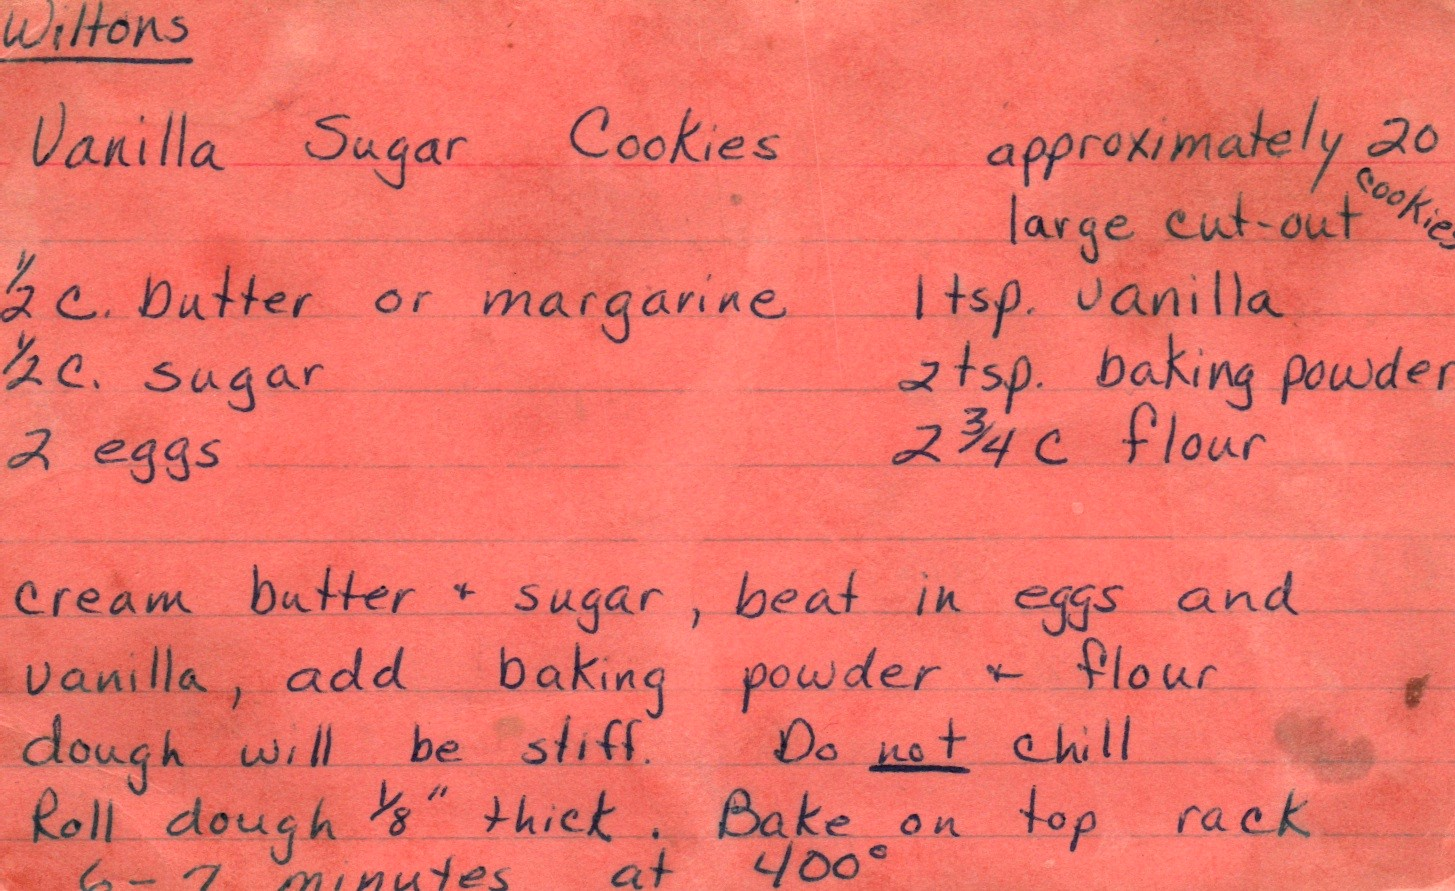 Wiltons
Vanilla Sugar Cookies
approximately 20
large cut-out cookies
1/2 c. butter or margarine
1/2 c. sugar
2 eggs
1 tsp. vanilla
2 tsp. baking powder
2 3/4 c flour
cream butter + sugar, beat in eggs and
vanilla, add baking powder + flour
dough will be stiff. Do not chill
Roll dough 1/8" thick. Bake on top rack
6-7 minutes at 400°